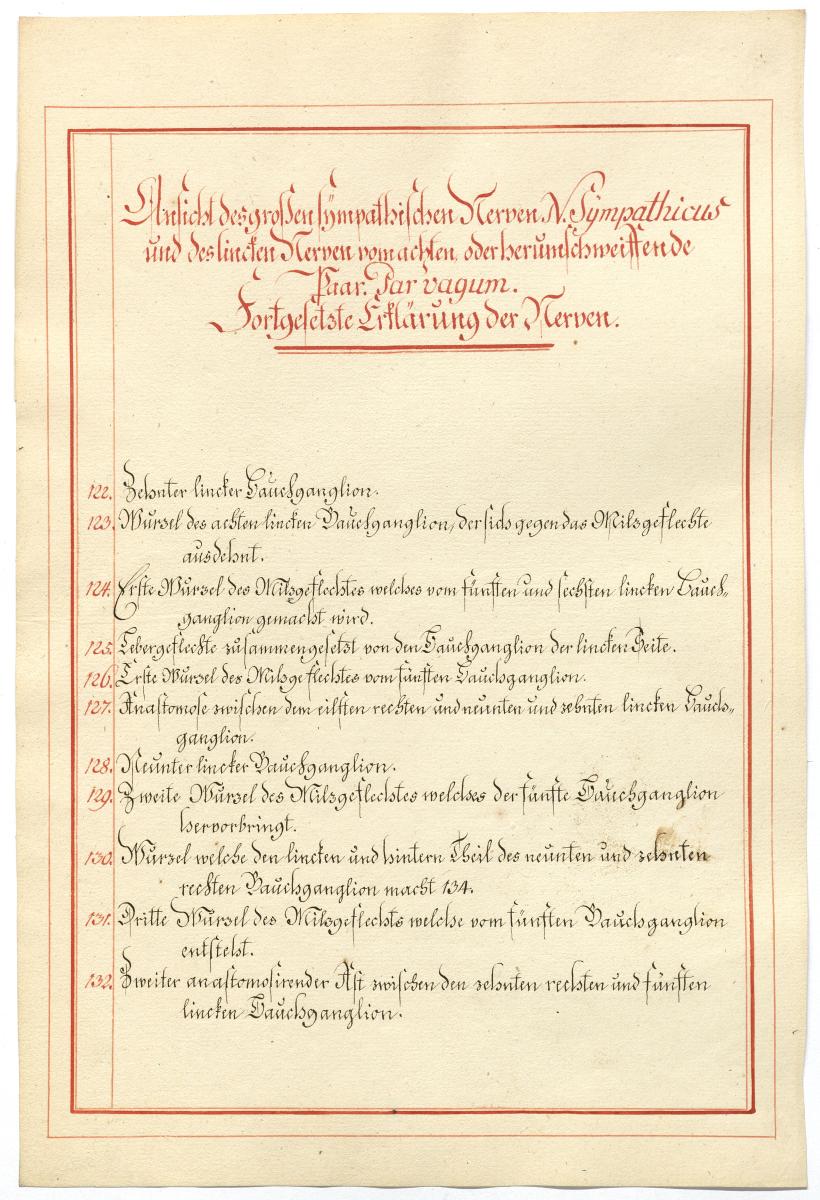 Ansicht des großen sympathischen Nerven N. Sympathicus
und des lincken Nerven vom achten, oder herumschweiffende
Paar. Par vagum.
Fortgesetzte Erklärung der Nerven.
122. Zehnter lincker Bauchganglion.
123. Wurzel des achten lincken Bauchganglion, der sich gegen das Milzgeflechte
ausdehnt.
124. Erste Wurzel des Milzgeflechtes welches vom fünften und sechsten lincken Bauch-
ganglion gemacht wird.
125. Lebergeflechte zusammengesetzt von den Bauchganglion der lincken Seite.
126. Erste Wurzel des Milzgeflechtes vom fünften Bauchganglion.
127. Anastomose zwischen dem eilften rechten und neunten und zehnten lincken Bauch-
ganglion.
128. Neunter lincker Bauchganglion.
129. Zweite Wurzel des Milzgeflechtes welches der fünfte Bauchganglion
hervorbringt.
130. Wurzel welche den lincken und hintern Theil des neunten und zehnten
rechten Bauchganglion macht 134.
131. Dritte Wurzel des Milzgeflechts welche vom fünften Bauchganglion
entsteht.
132. Zweiter anastomosirender Ast zwischen den zehnten rechten und fünften
lincken Bauchganglion.